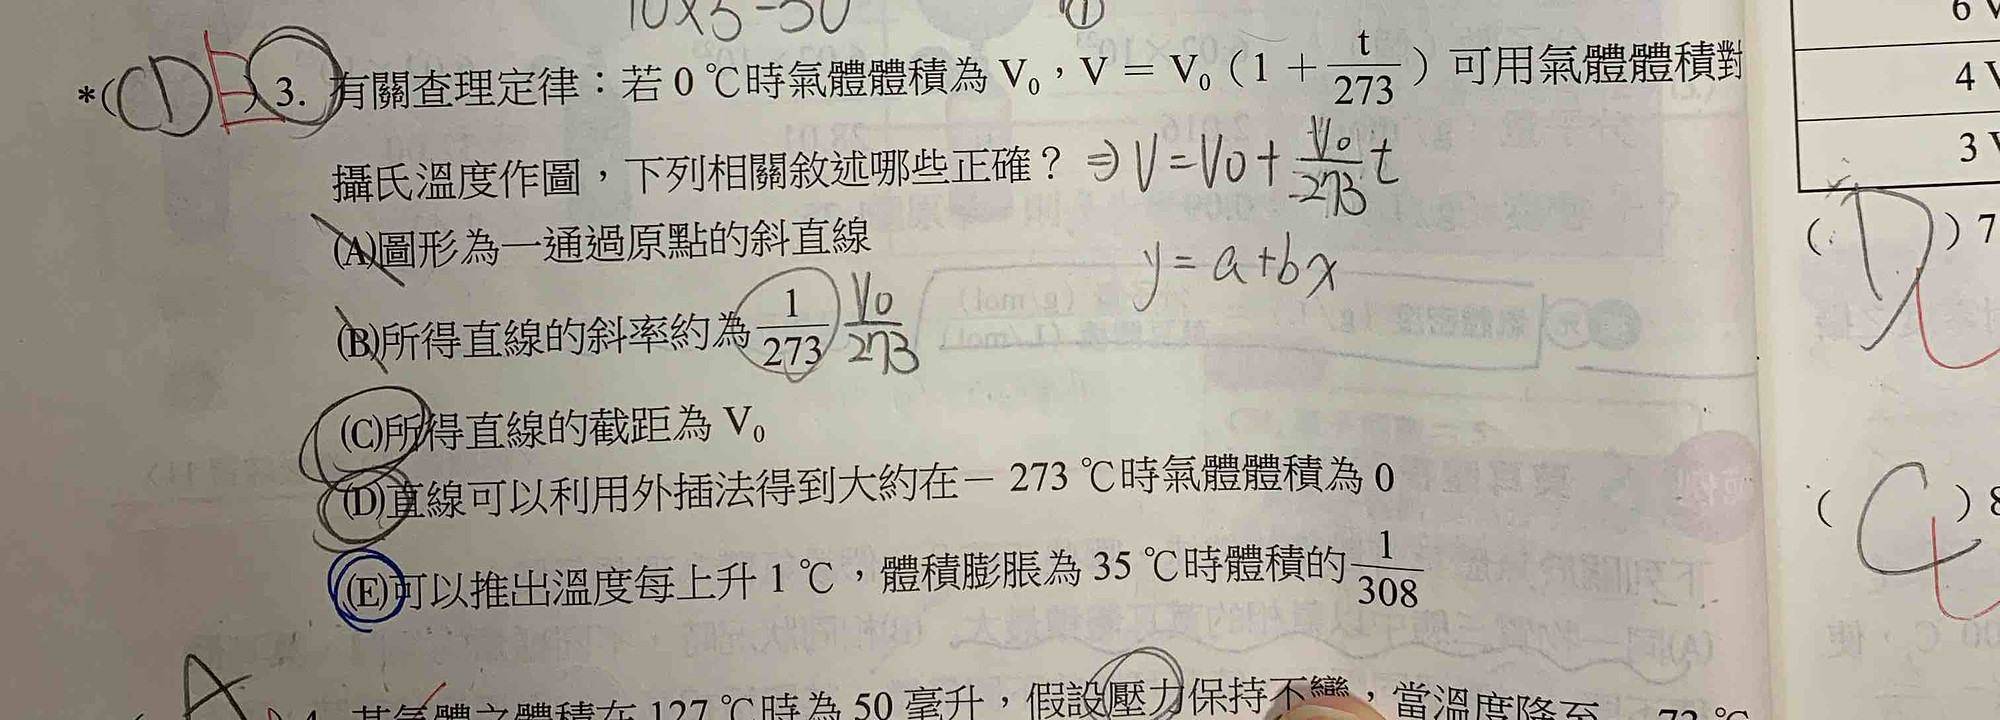 10×5=50
①
*(CDE) 3. 有關查理定律：若 0 ℃時氣體體積為 V₀，V = V₀（1 + t/273）可用氣體體積對
攝氏溫度作圖，下列相關敘述哪些正確？ ⇒ V = V₀ + V₀/273 t
(A)圖形為一通過原點的斜直線
y = a + bx
(B)所得直線的斜率約為 1/273 V₀/273
(C)所得直線的截距為 V₀
(D)直線可以利用外插法得到大約在－ 273 ℃時氣體體積為 0
(E)可以推出溫度每上升 1 ℃，體積膨脹為 35 ℃時體積的 1/308
A 4. 某氣體之體積在 127 ℃時為 50 毫升，假設壓力保持不變，當溫度降至 － 73 ℃
6 V
4 V
3 V
( D ) 7
( C ) 8
00 C，使